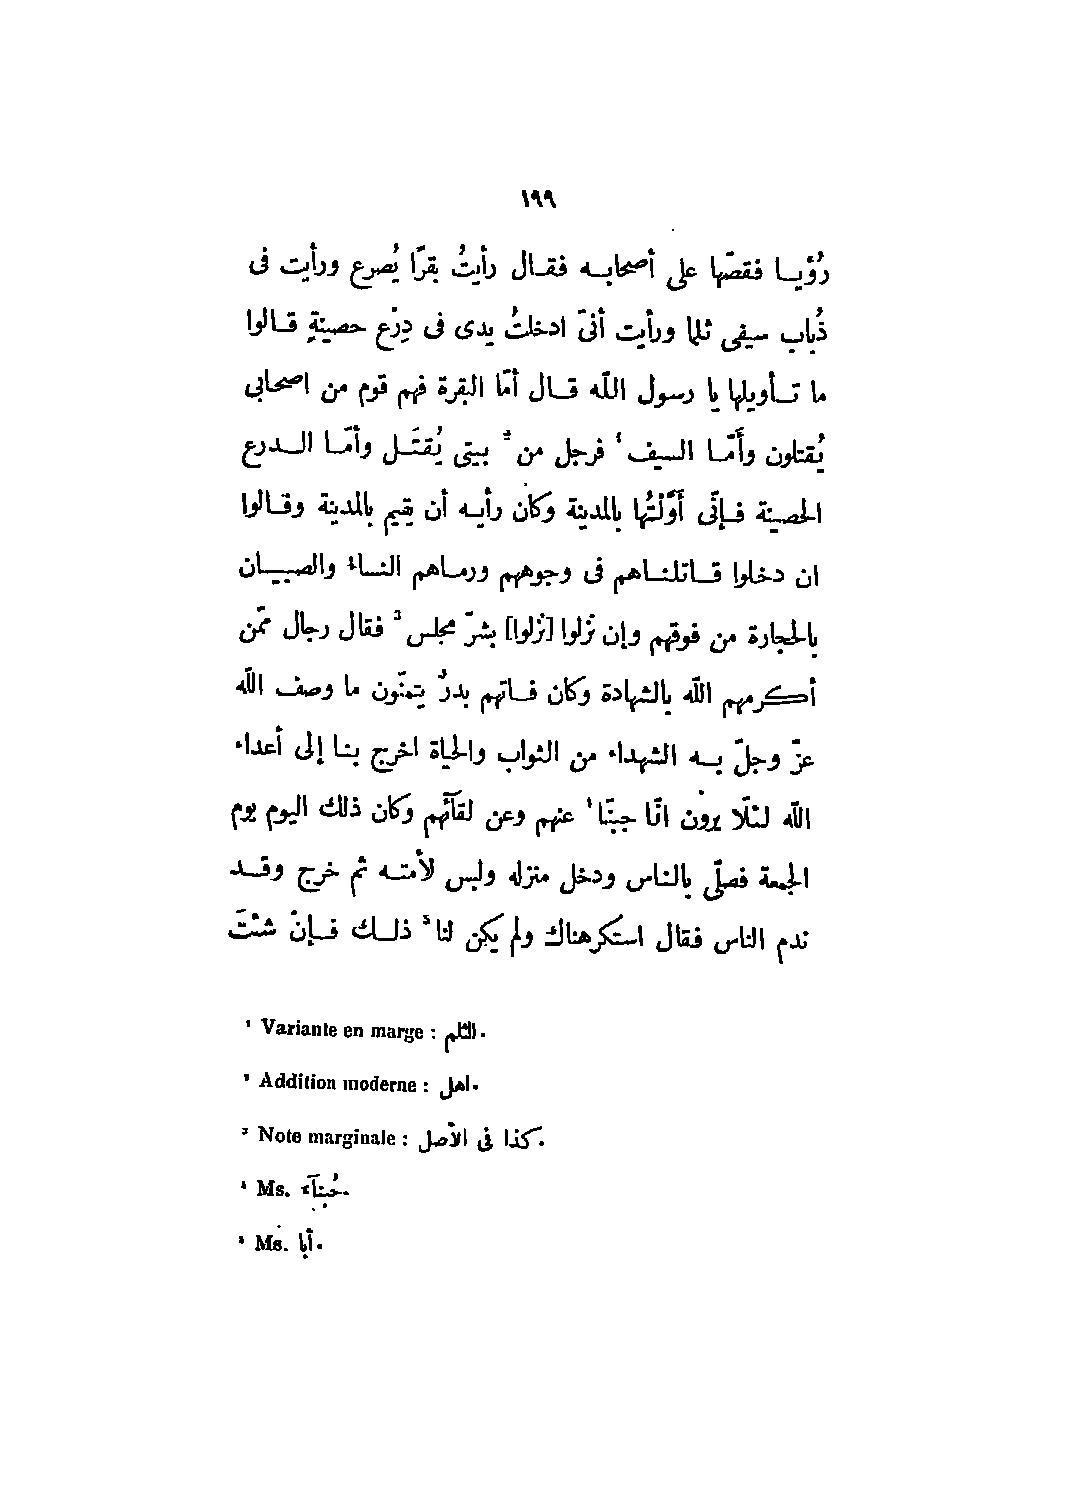 ١٩٩
رُؤيا فقصّها على أصحابه فقال رأيتُ بقرًا يُصرع ورأيت فى
ذُباب سيفى ثلما ورأيت أنّى ادخلتُ يدى فى دِرْع حصينةٍ قالوا
ما تأويلها يا رسول الله قال أمّا البقرة فهم قوم من اصحابى
يُقتلون وأَمّا السيف ¹ فرجل من ² بيتى يُقتَل وأمّا الدرع
الحصينة فإنّى أَوَّلتُها بالمدينة وكان رأيه أن يقيم بالمدينة وقالوا
ان دخلوا قاتلناهم فى وجوههم ورماهم النساء والصبيان
بالحجارة من فوقهم وإن نزلوا [نزلوا] بشرّ مجلس ³ فقال رجال ممّن
أكرمهم الله بالشهادة وكان فاتهم بدرٌ يتمنّون ما وصف الله
عزّ وجلّ به الشهداء من الثواب والحياة اخرج بنا إلى أعداء
الله لئلّا يرون انّا جبنّا ⁴ عنهم وعن لقآئهم وكان ذلك اليوم يوم
الجمعة فصلّى بالناس ودخل منزله ولبس لأمته ثم خرج وقد
ندم الناس فقال استكرهناك ولم يكن لنا ⁵ ذلك فإنْ شئتَ
¹ Variante en marge : الثلم.
² Addition moderne : اهل.
³ Note marginale : كذا فى الأصل.
⁴ Ms. جُبنآء.
⁵ Ms. أبا.